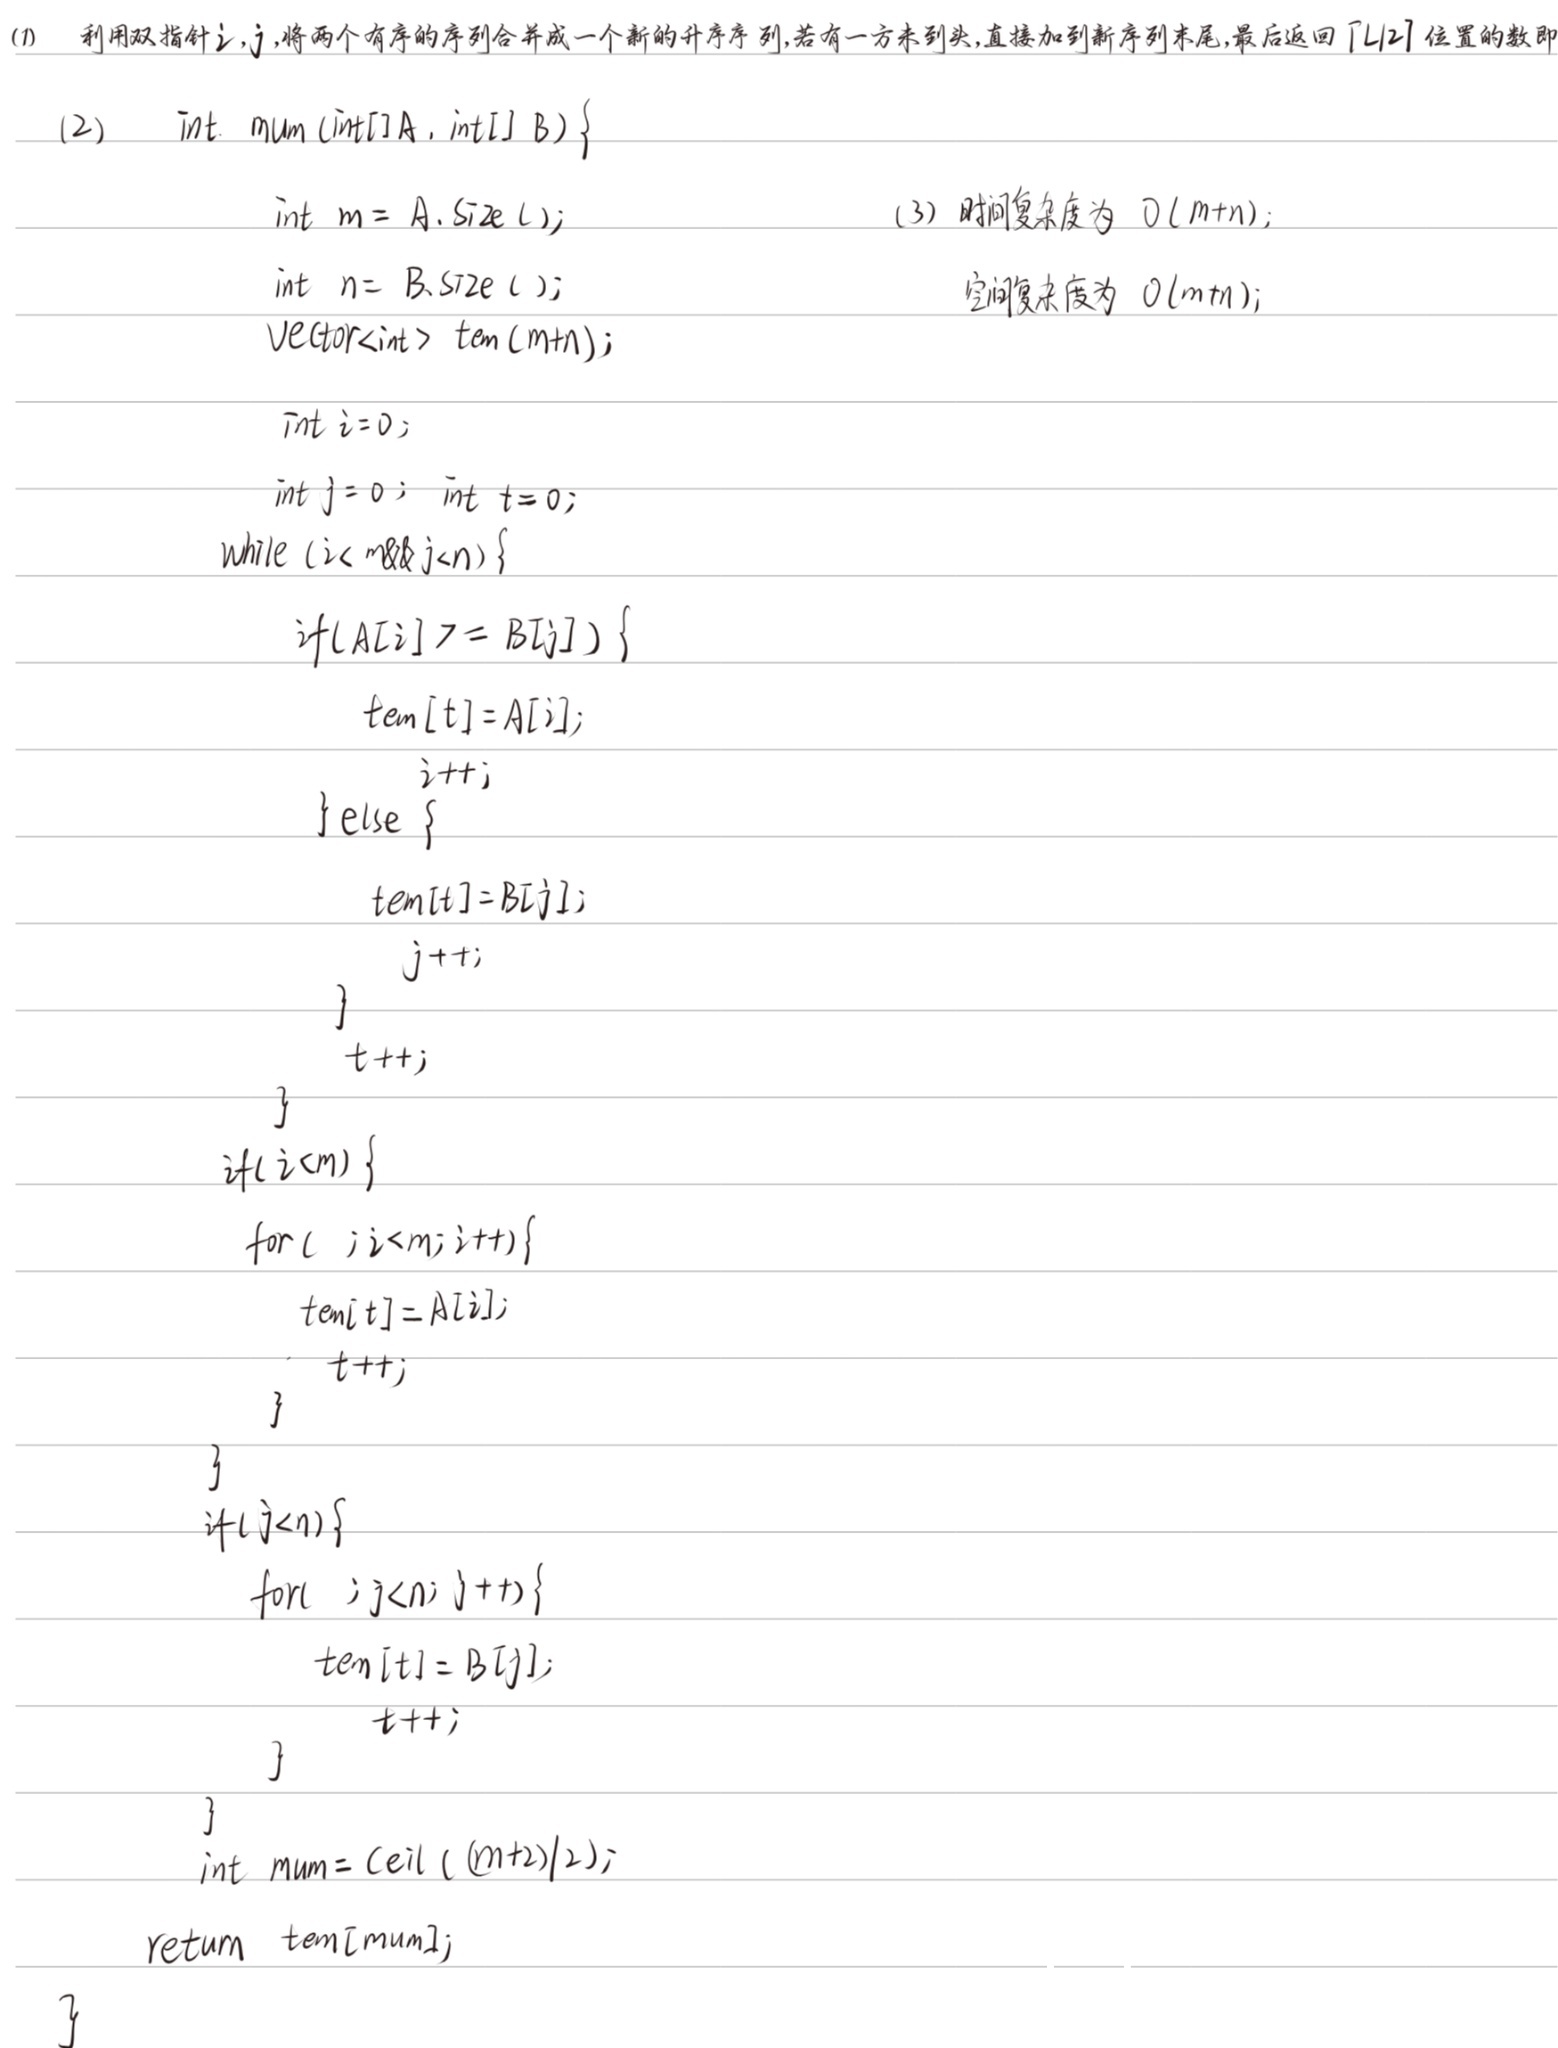 (1) 利用双指针i,j,将两个有序的序列合并成一个新的升序序列,若有一方未到头,直接加到新序列末尾,最后返回⌈L/2⌉位置的数即
(2) int mum(int[]A, int[] B){
int m = A.size();
(3) 时间复杂度为 O(m+n);
int n= B.size();
空间复杂度为 O(m+n);
vector<int> tem(m+n);
int i=0;
int j=0; int t=0;
while (i<m&&j<n){
if(A[i]>=B[j]){
tem[t]=A[i];
i++;
}else{
tem[t]=B[j];
j++;
}
t++;
}
if(i<m){
for( ;i<m;i++){
tem[t]=A[i];
t++;
}
}
if(j<n){
for( ;j<n;j++){
tem[t]=B[j];
t++;
}
}
int mum=ceil((m+2)/2);
return tem[mum];
}